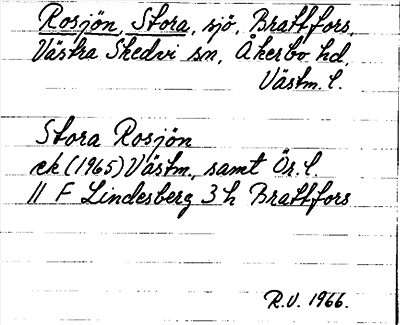 Rosjön, Stora, sjö, Brattfors,
Västra Skedvi sn, Åkerbo hd,
Västm. l.
Stora Rosjön
ek (1965) Västm., samt Ör. l.
11 F Lindesberg 3 h Brattfors
R.V. 1966.